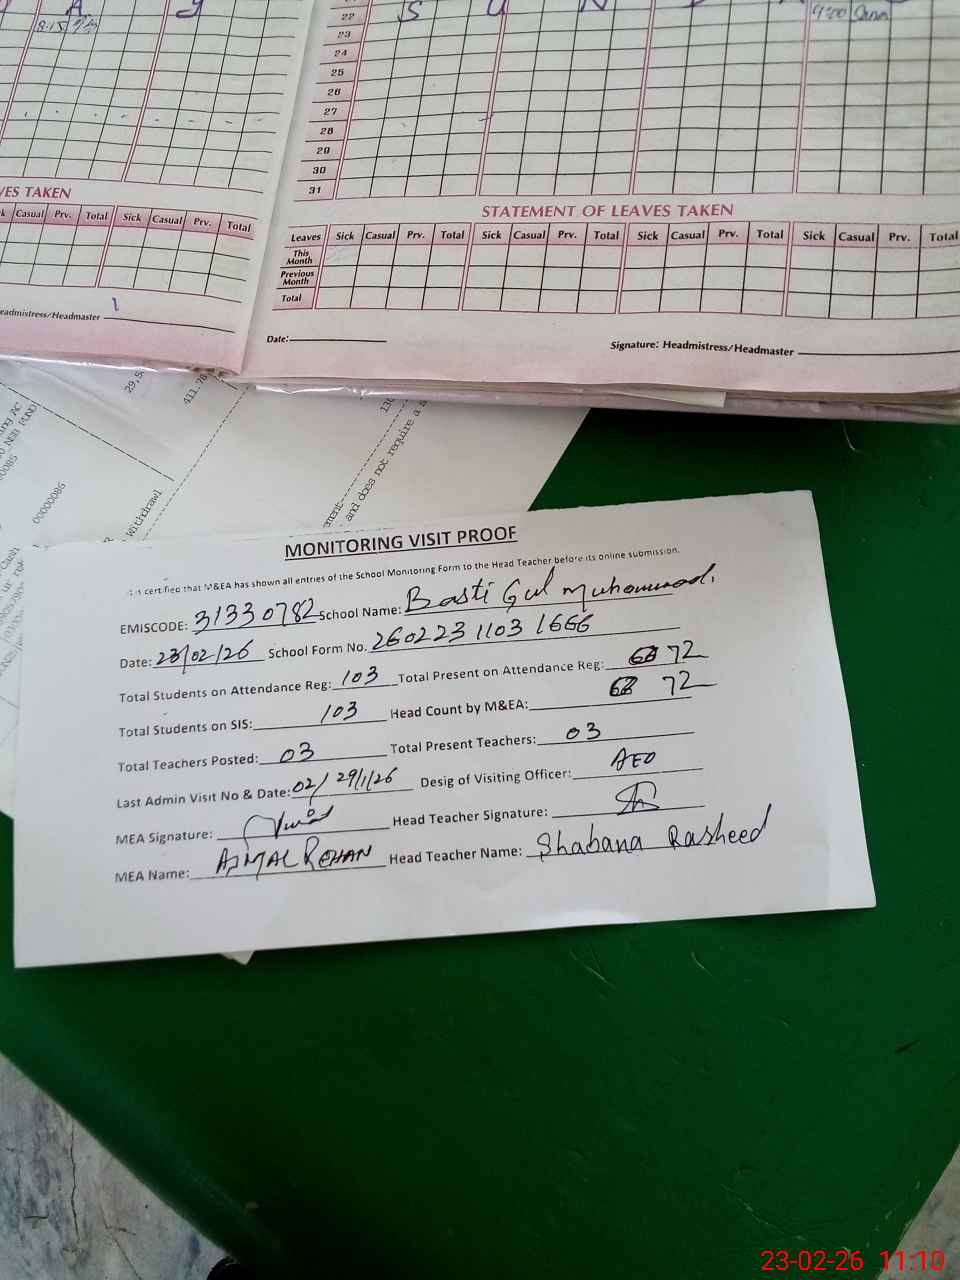 8:15
22 S U N D A
9:00
23
24
25
26
27
28
29
30
31
VES TAKEN
Casual Prv. Total Sick Casual Prv. Total
eadmistress/Headmaster
STATEMENT OF LEAVES TAKEN
Leaves Sick Casual Prv. Total Sick Casual Prv. Total Sick Casual Prv. Total Sick Casual Prv. Total
This Month
Previous Month
Total
Date:
Signature: Headmistress/Headmaster
29,5
411.78
130
ing AC
0 NSB FUND
00085
00000086
Withdrawl
Cash
ment
and does not require a
MONITORING VISIT PROOF
It is certified that M&EA has shown all entries of the School Monitoring Form to the Head Teacher before its online submission.
EMISCODE: 31330782 School Name: Basti Gul Muhammad.
Date: 23/02/26 School Form No. 260223 1103 1666
Total Students on Attendance Reg: 103 Total Present on Attendance Reg: 72
Total Students on SIS: 103 Head Count by M&EA: 72
Total Teachers Posted: 03 Total Present Teachers: 03
Last Admin Visit No & Date: 02/ 29/1/26 Desig of Visiting Officer: AEO
MEA Signature: Head Teacher Signature:
MEA Name: AJMAL REHAN Head Teacher Name: Shabana Rasheed
23-02-26 11:10